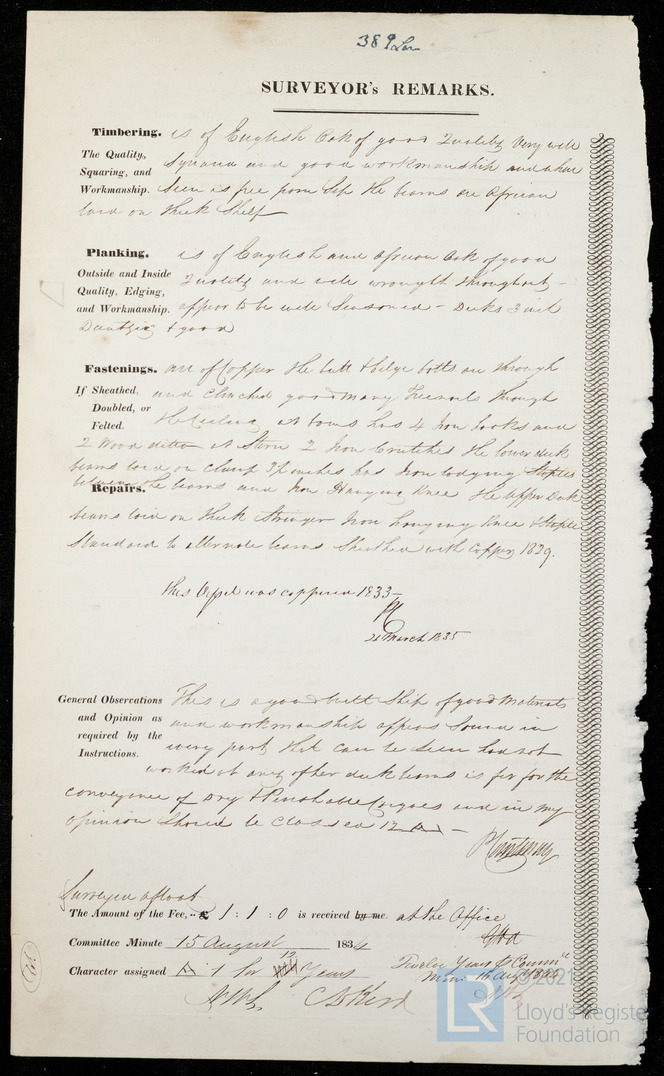 389 Lon
SURVEYOR's REMARKS.
Timbering. is of English Oak of good Quality Very well
The Quality, Squaring, and Workmanship.
Squared and good workmanship and where
seen is free from Sap the beams are African
laid on thick Shelf
Planking. is of English and African Oak of good
Outside and Inside Quality, Edging, and Workmanship.
Quality and well wrought throughout -
appear to be well Seasoned - Decks 3 inch
Dantzig & good
Fastenings. are of Copper the butt & bilge bolts are through
If Sheathed, Doubled, or Felted.
and Clinched good many Treenails through
the Ceiling at bows has 4 Iron hooks and
2 Wood ditto at Stern 2 Iron Crutches the lower deck
beams laid on clamp inches has Iron lodging Staples
between the beams and Iron Hanging Knee the Upper Deck
Repairs.
beams laid on thick Stringer Iron hanging Knee & Staple
Standard to alternate beams Sheathed with Copper 1829.
This Vessel was coppered 1833 -
21 March 1835
General Observations and Opinion as required by the Instructions.
This is a good built Ship of good Materials
and workmanship appears Sound in
every part that can be seen has not
worked at any of her deck beams is fit for the
conveyance of Dry & Perishable Cargoes and in my
opinion Should be Classed 12 A -
P Courtenay
Surveyed afloat
The Amount of the Fee, £ 1 : 1 : 0 is received by me. at the Office
Committee Minute 15 August 1834
Character assigned A 1 for 12 Years
Twelve Years
© 2021
LR
Lloyd's Register
Foundation